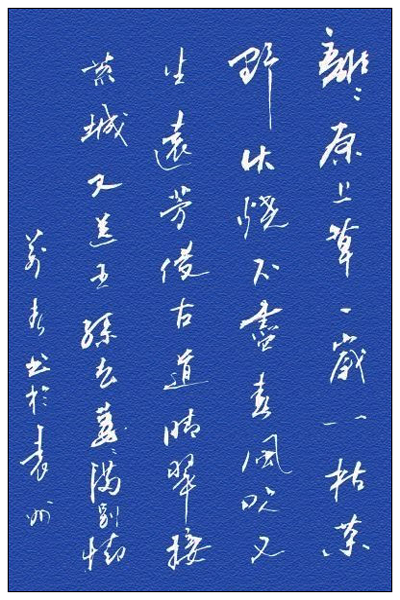 離〻原上草一歲一枯榮
野火燒不盡春風吹又
生遠芳侵古道晴翠接
荒城又送王孫去萋〻滿別情
书於袁州